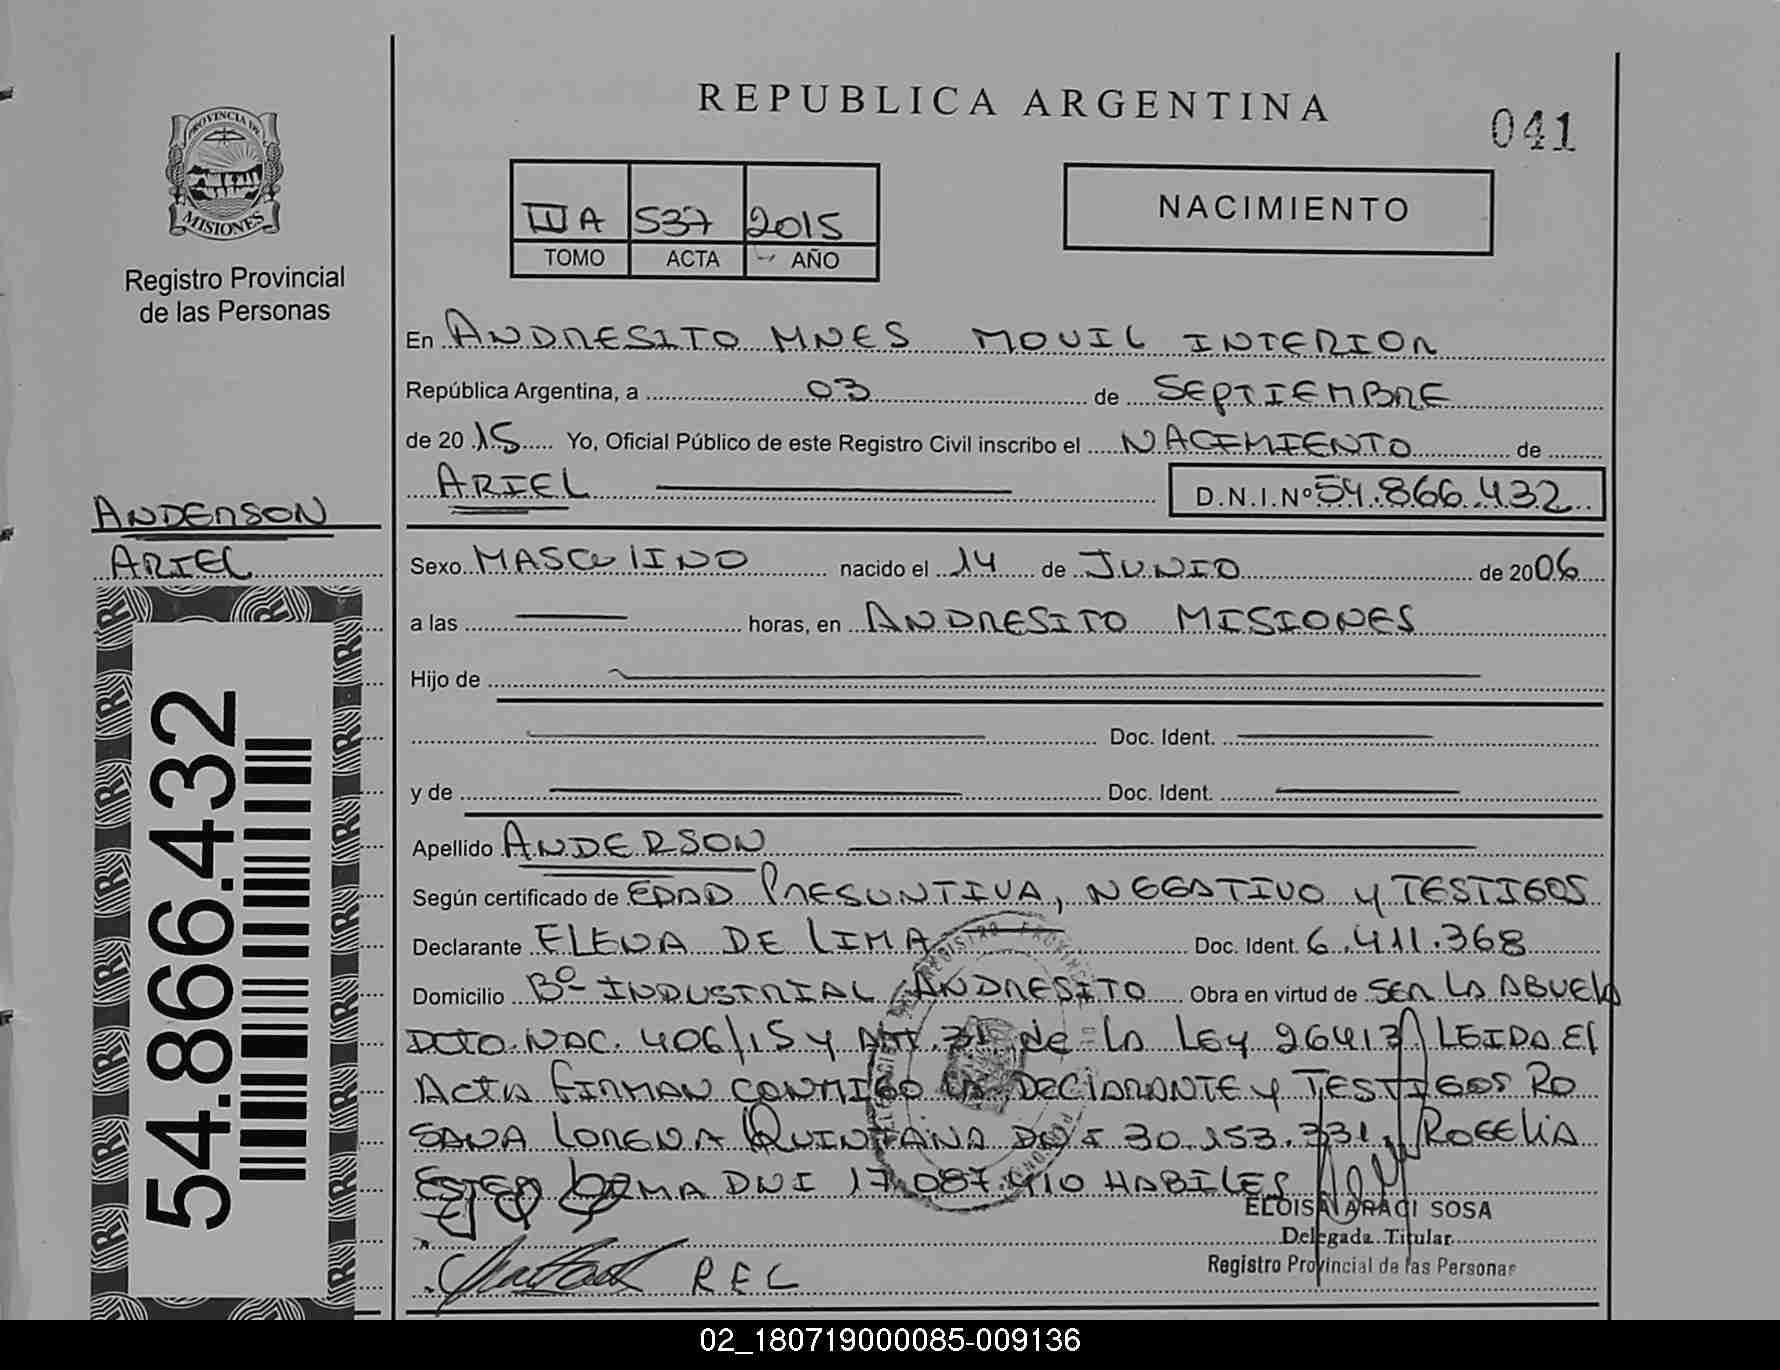 REPUBLICA ARGENTINA
041
PROVINCIA DE
MISIONES
Registro Provincial
de las Personas
III A 537 2015
TOMO ACTA AÑO
NACIMIENTO
En ANDRESITO MNES MOVIL INTERIOR
República Argentina, a 03 de SEPTIEMBRE
de 2015 Yo, Oficial Público de este Registro Civil inscribo el NACIMIENTO de
ARIEL D.N.I.Nº 54.866.432
ANDERSON
ARIEL
Sexo MASCULINO nacido el 14 de JUNIO de 2006
a las horas, en ANDRESITO MISIONES
Hijo de
Doc. Ident.
y de Doc. Ident.
Apellido ANDERSON
Según certificado de EDAD PRESUNTIVA, NEGATIVO y TESTIGOS
Declarante ELENA DE LIMA Doc. Ident. 6.411.368
Domicilio Bº INDUSTRIAL ANDRESITO Obra en virtud de SER LA ABUELA
DCTO. NAC. 406/15 Y ART. 31 de LA LEY 26413 LEIDA El
ACTA FIRMAN CONMIGO LA DECLARANTE y TESTIGOS RO
SANA LORENA QUINTANA DNI 30.153.331, ROGELIA
ESTER DNI 17.087.410 HABILES
ELOISA ARACI SOSA
Delegada Titular
Registro Provincial de las Personas
REL
54.866.432
02_180719000085-009136